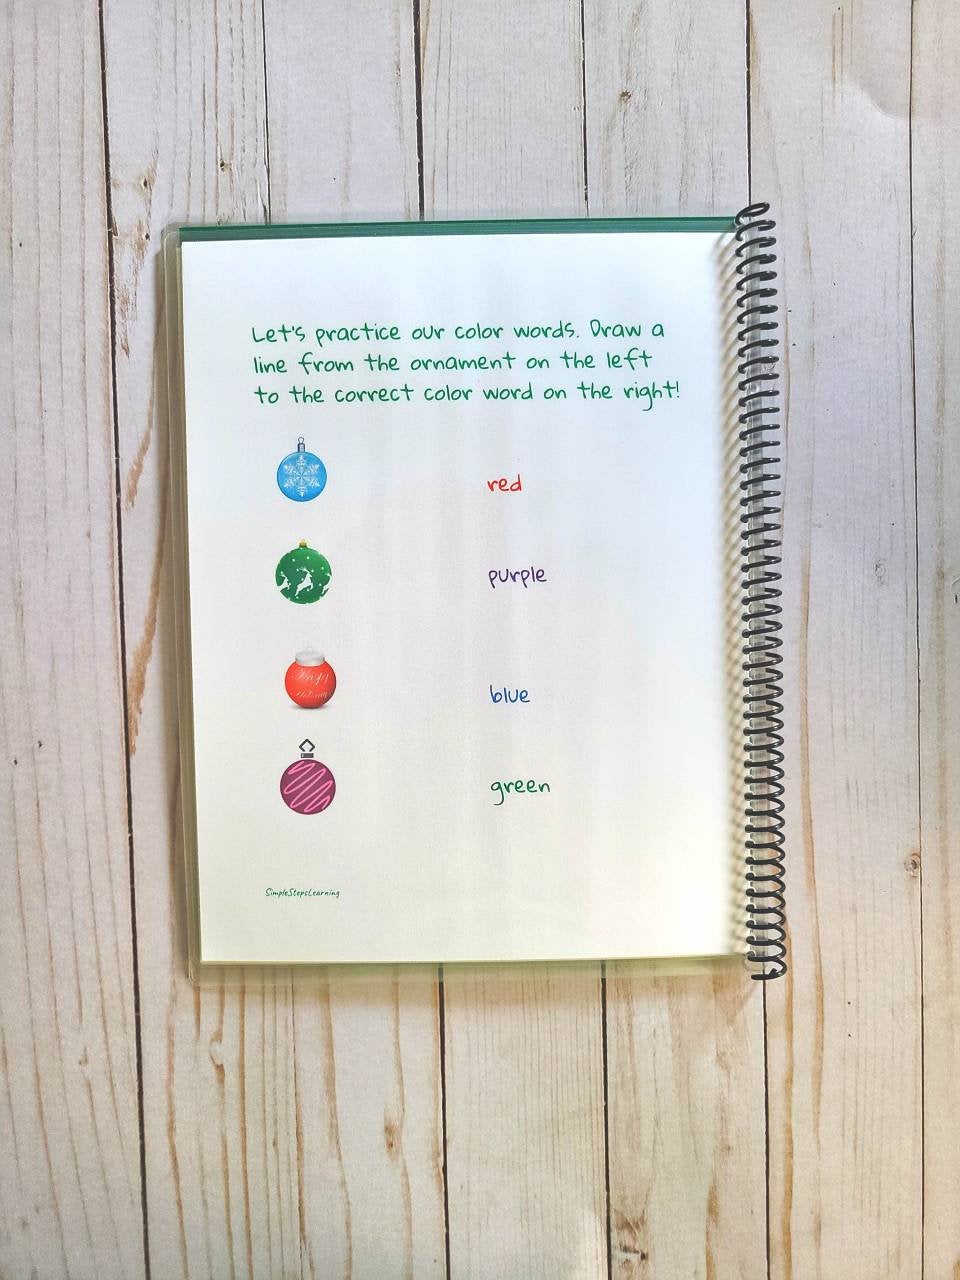 Let's practice our color words. Draw a
line from the ornament on the left
to the correct color word on the right!
red
purple
blue
green
SimpleStepsLearning